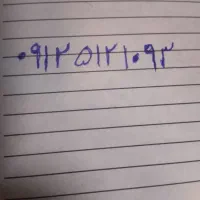 ۰۹۱۲ ۵۱۲۱۰۹۳